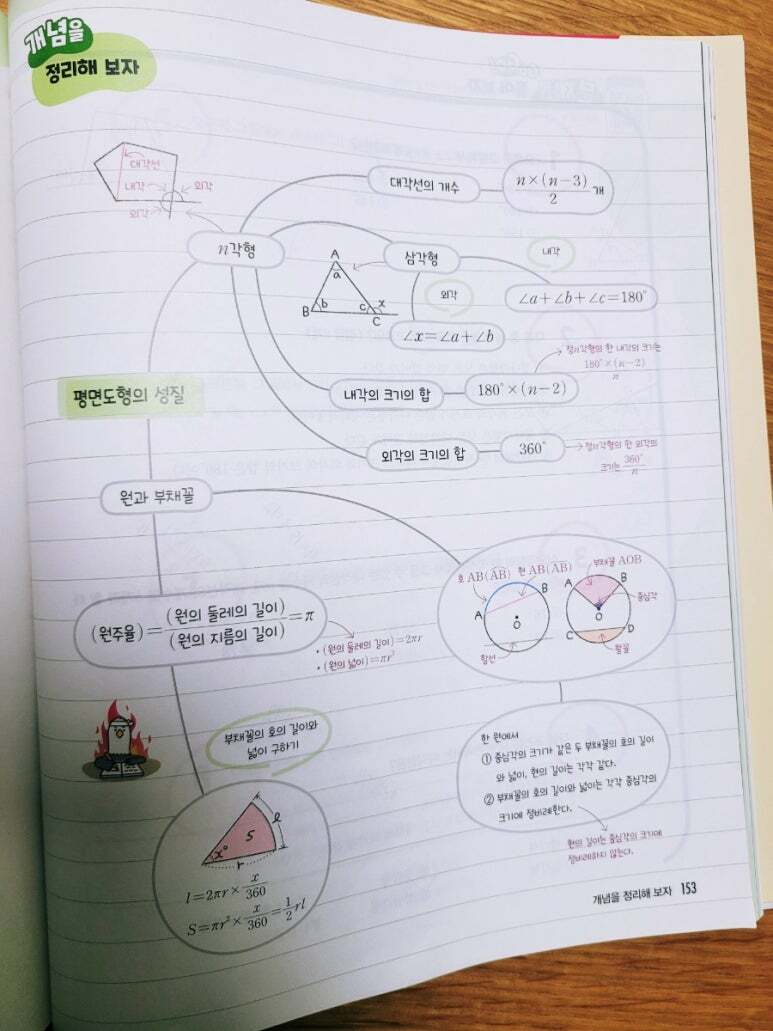 개념을
정리해 보자
대각선
내각
외각
외각
n각형
대각선의 개수
n×(n-3)/2 개
삼각형
내각
∠a+∠b+∠c=180°
외각
∠x=∠a+∠b
A
a
B
b
c
x
C
내각의 크기의 합
180°×(n-2)
정n각형의 한 내각의 크기는
180°×(n-2)/n
외각의 크기의 합
360°
정n각형의 한 외각의
크기는 360°/n
평면도형의 성질
원과 부채꼴
호 AB(AB) 현 AB(AB)
A
B
O
할선
부채꼴 AOB
A
B
중심각
O
C
D
활꼴
(원주율)=(원의 둘레의 길이)/(원의 지름의 길이)=π
• (원의 둘레의 길이)=2πr
• (원의 넓이)=πr²
한 원에서
① 중심각의 크기가 같은 두 부채꼴의 호의 길이
와 넓이, 현의 길이는 각각 같다.
② 부채꼴의 호의 길이와 넓이는 각각 중심각의
크기에 정비례한다.
현의 길이는 중심각의 크기에
정비례하지 않는다.
부채꼴의 호의 길이와
넓이 구하기
S
l
x°
r
l=2πr×x/360
S=πr²×x/360=1/2rl
개념을 정리해 보자 153